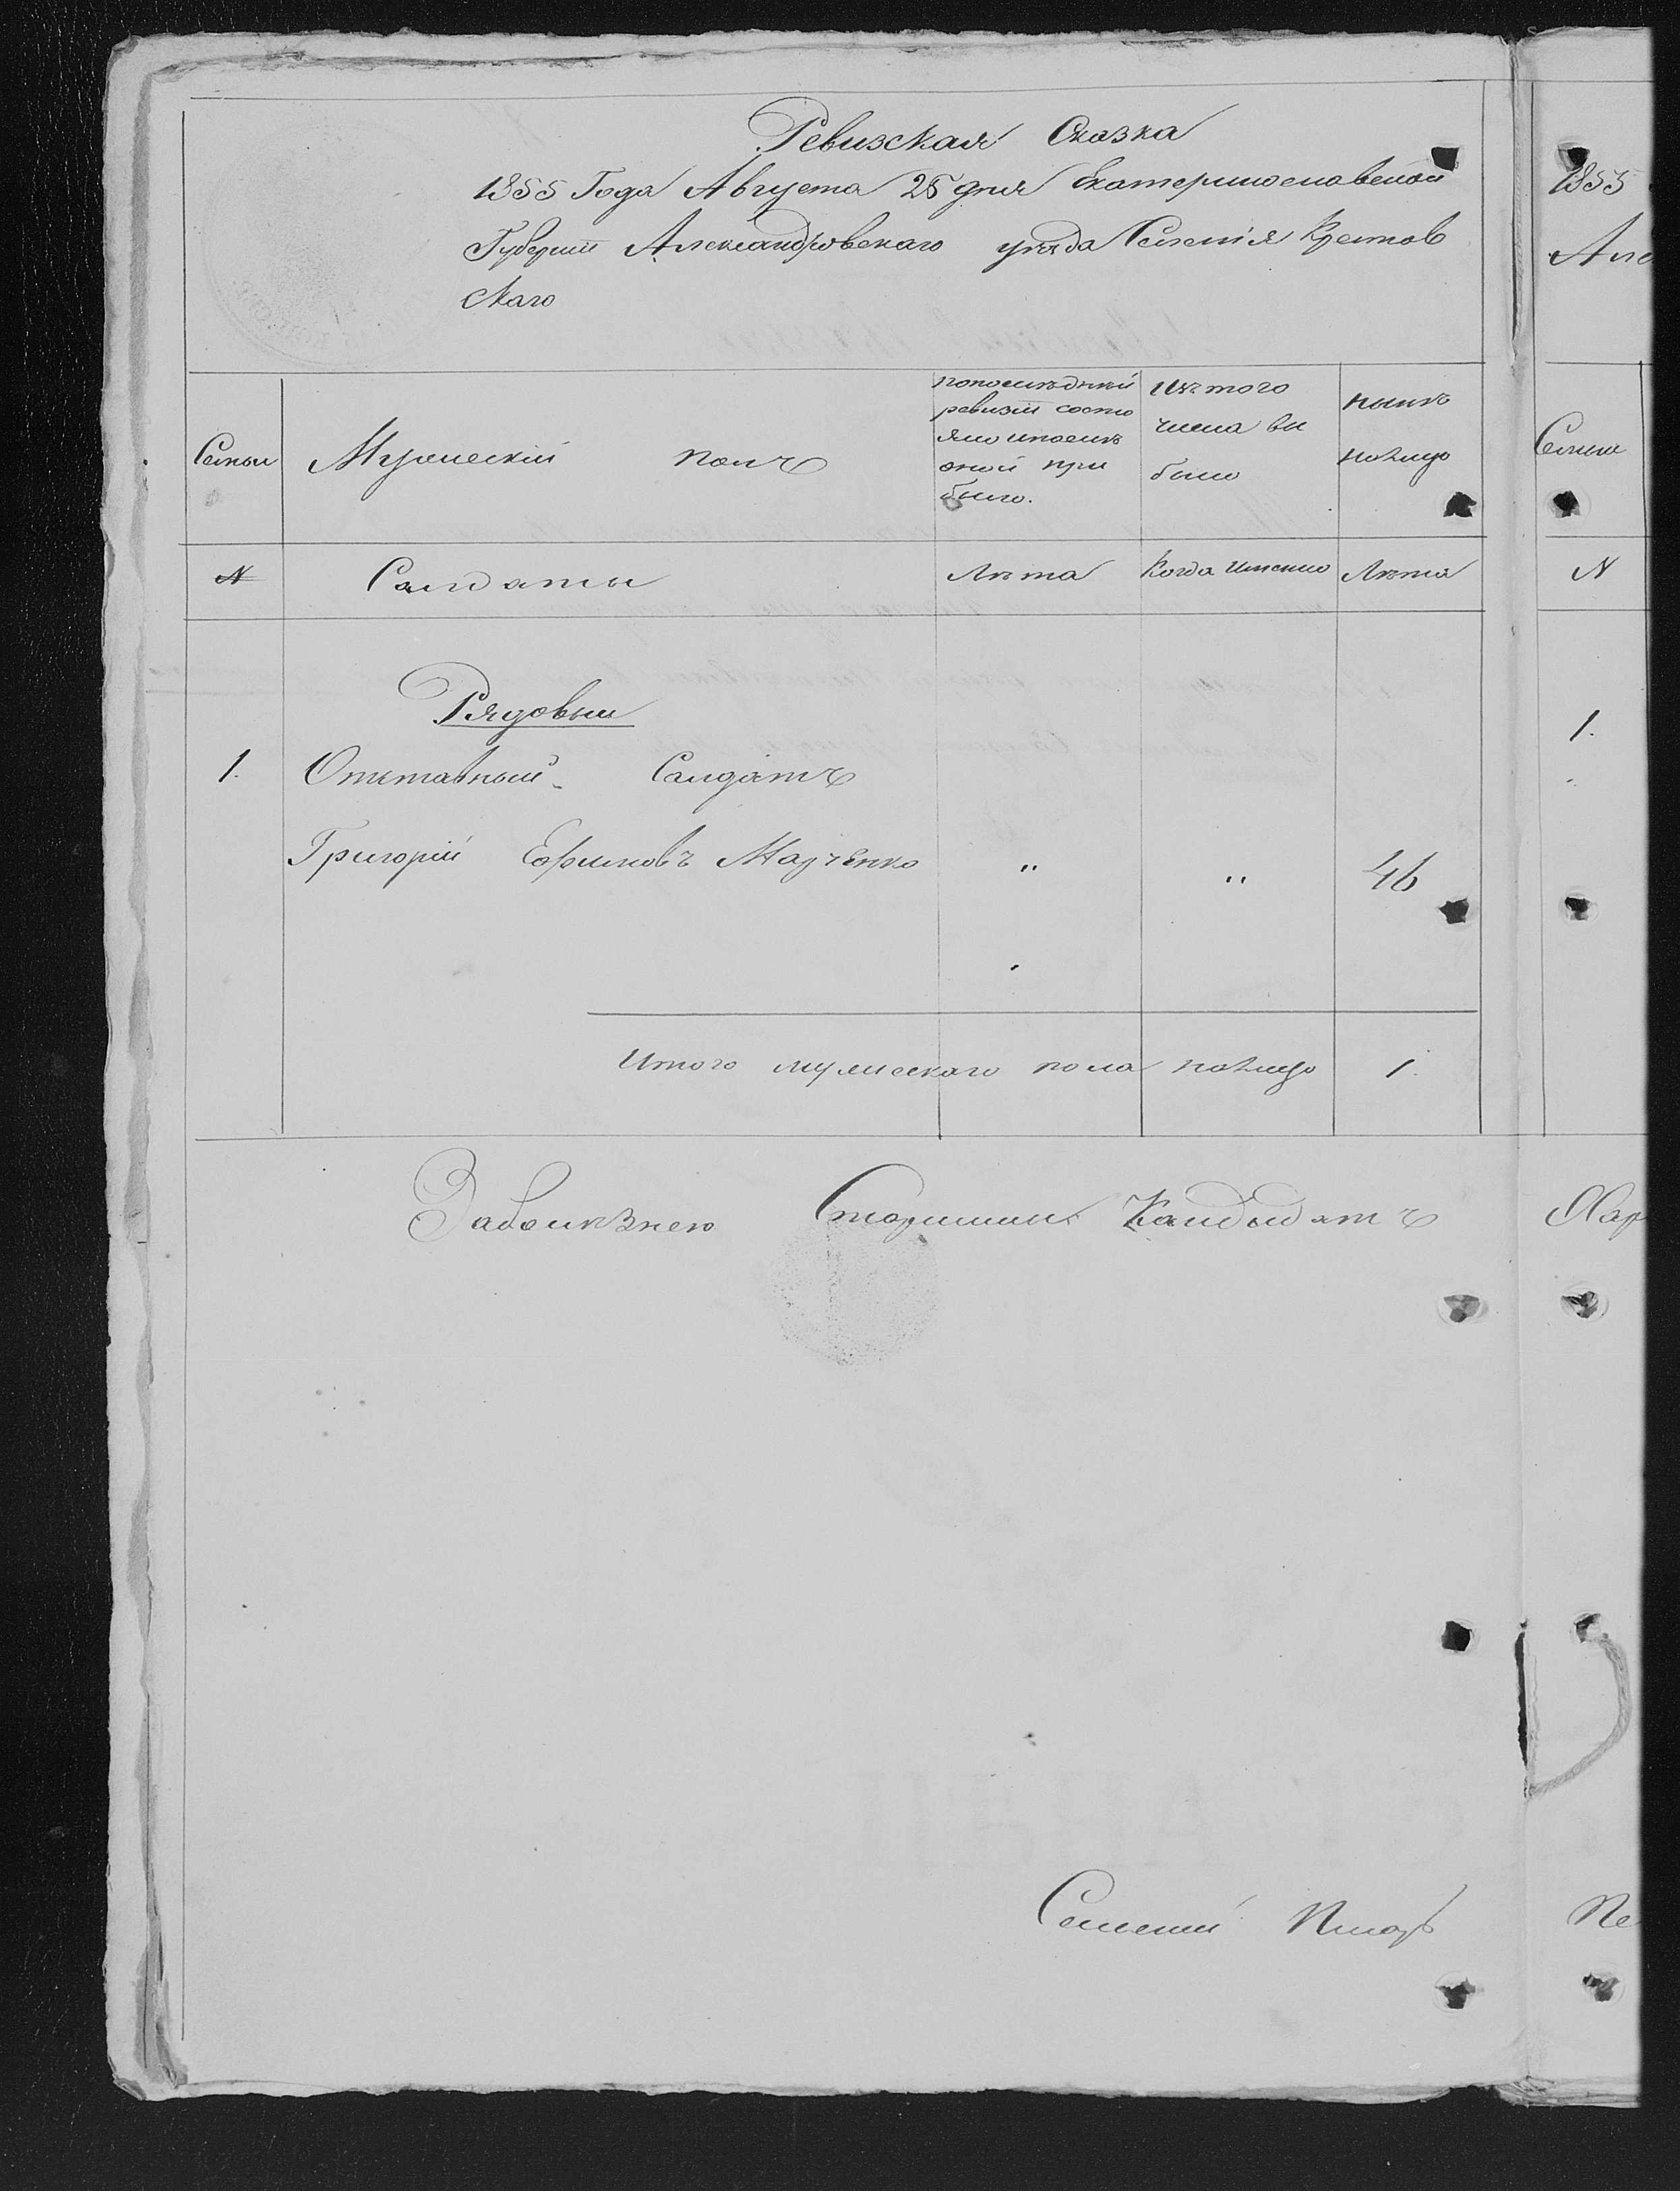 Ревизская Сказка
1855 Года Августа 25 дня Екатеринославской
Губернии Александровскаго уѣзда Селенія Кремов
скаго
Семьи
Мужескій полъ
попослѣдней
ревизіи состо
яло ипослѣ
оной при
было.
Изтого
числа вы
было
нынѣ
налицо
N
Салдаты
Лѣта
Когда Имянно
Лѣта
Рядовыи
1. Отставный Салдатъ
Григорій Ефимовъ Марченко " " 46
Итого мужескаго пола налицо 1.
Старшины Кандыдатъ
Сельскій Писарь
1855
Але
Семьи
N
1.
Хар
Пе